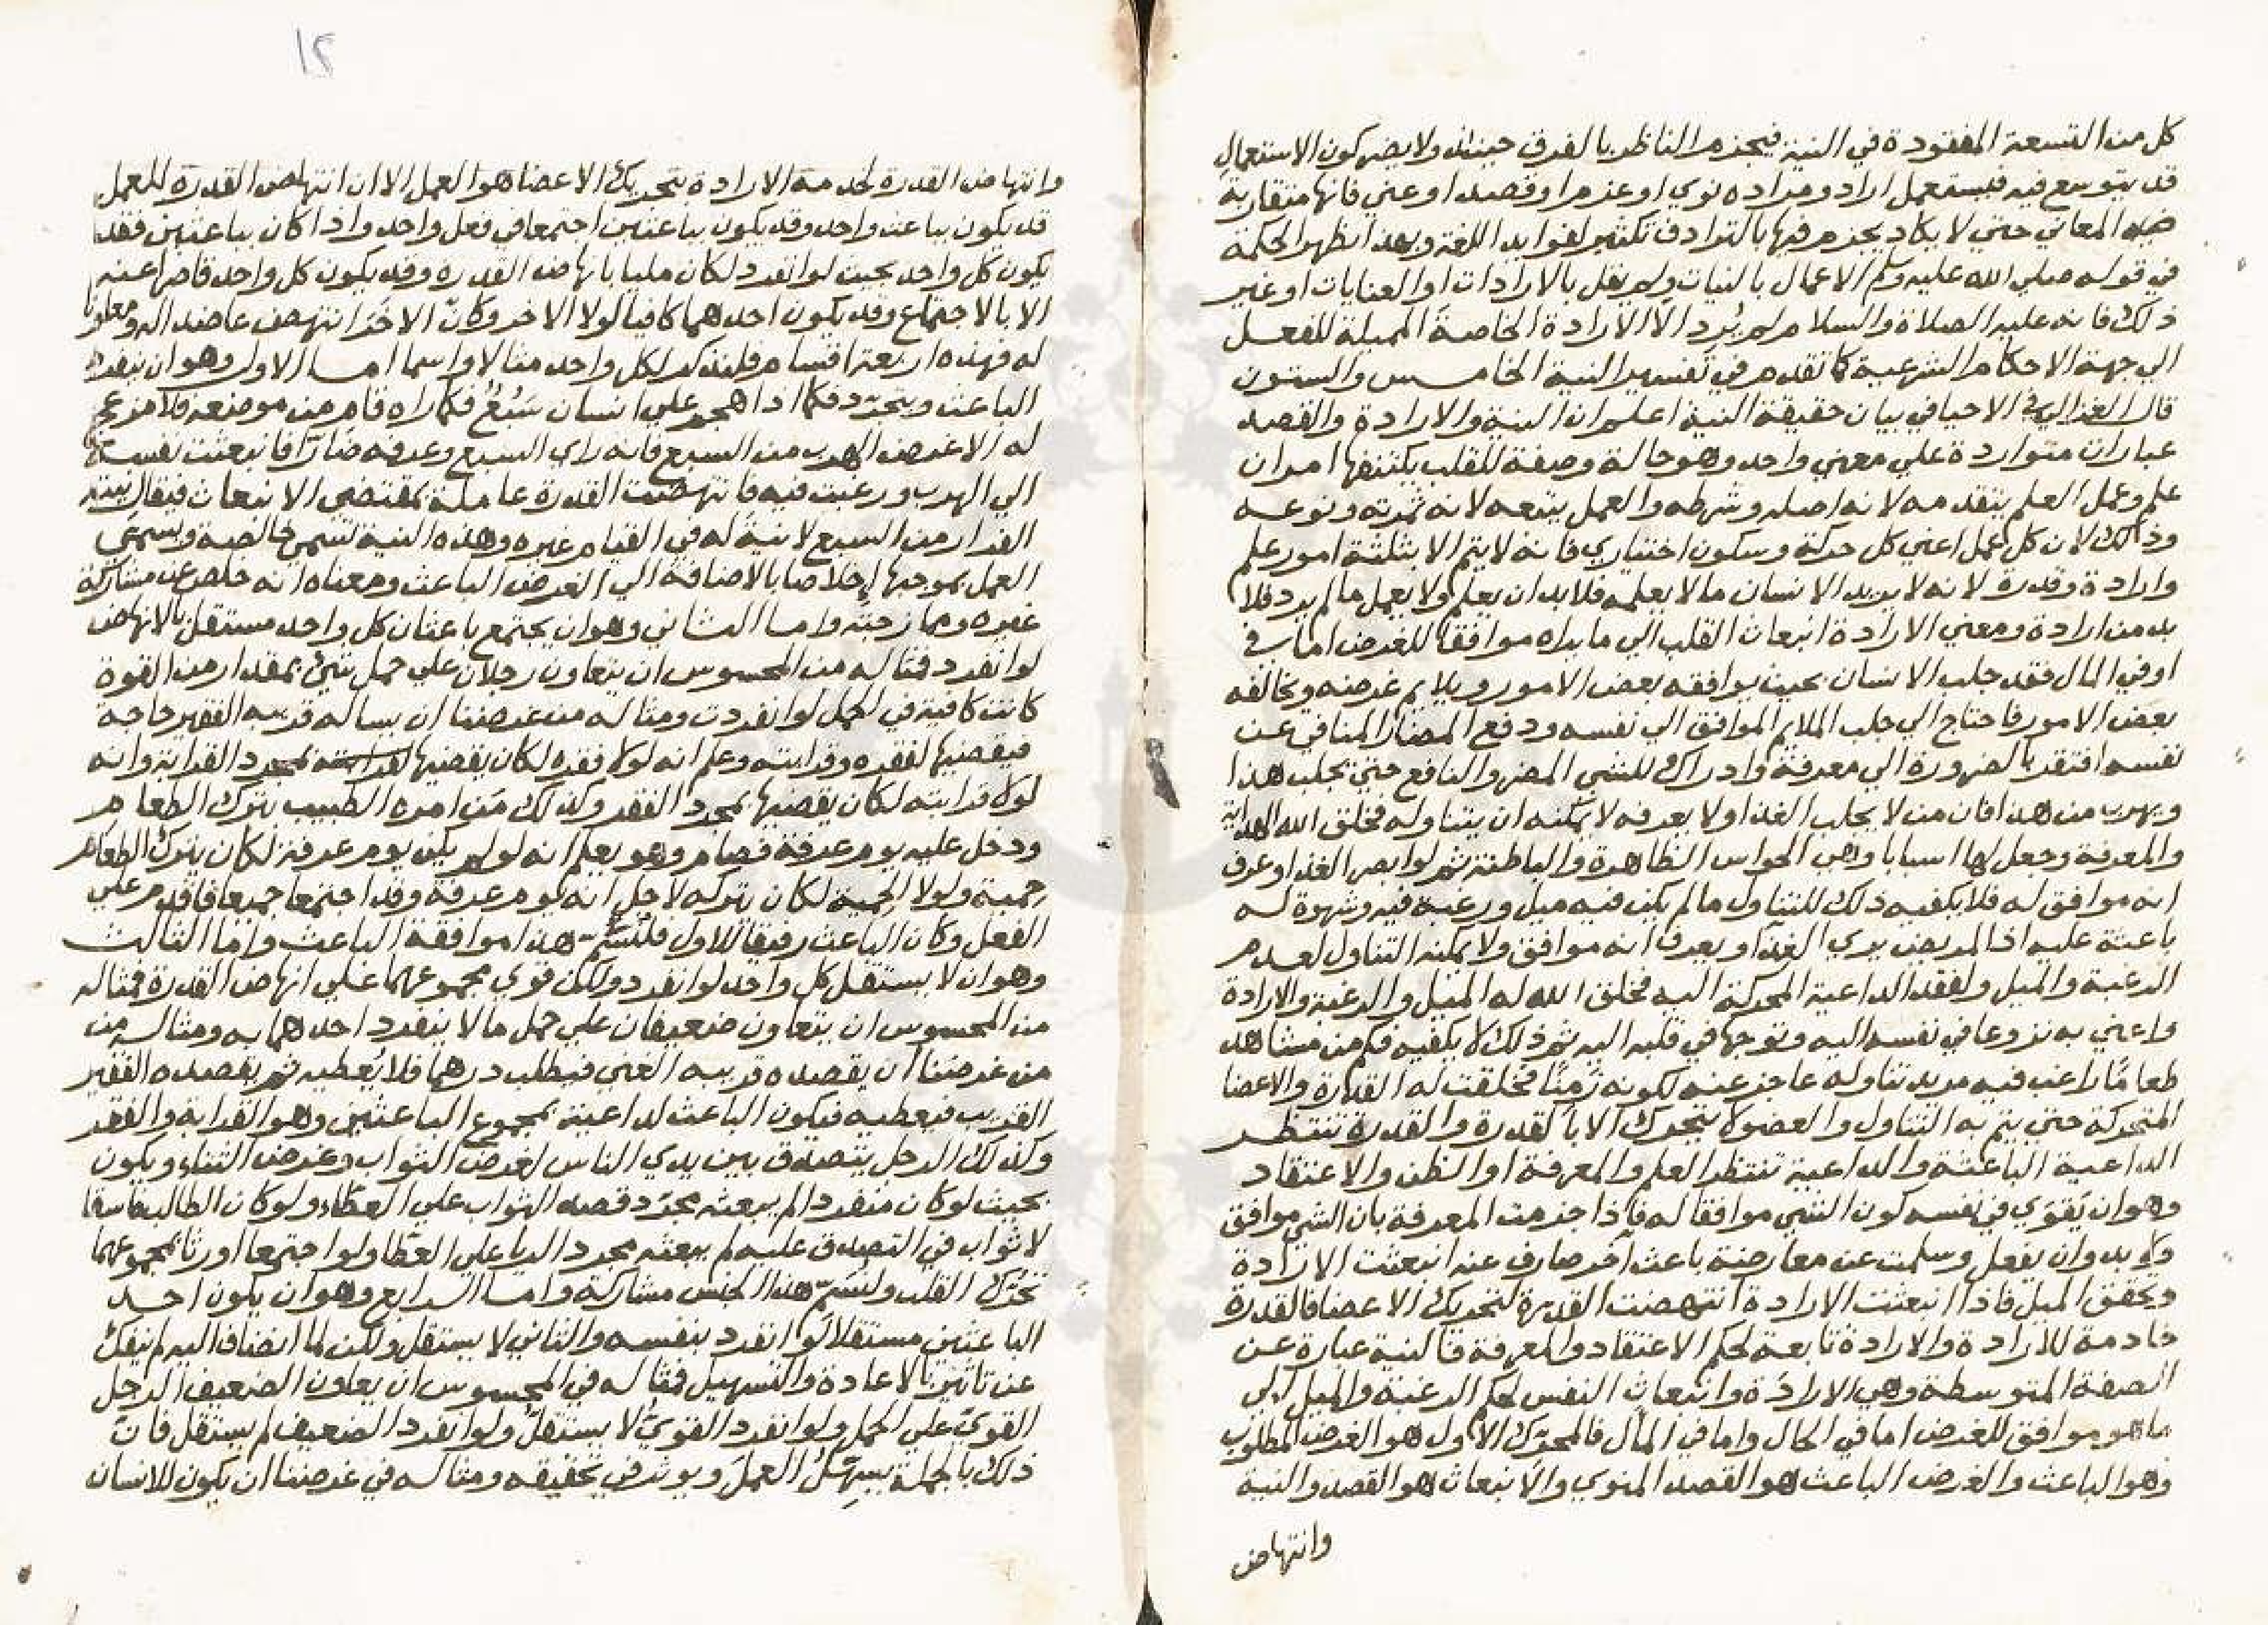 كل من التسعة المفقودة في النية فيجزم الناظر بالفرق حينئذ ولا يضر كون الاستعمال
قد يتوسع فيه فيستعمل اراد ومراده نوي او عزم او قصد او عني فانها متقاربة
المعاني حتي لا يكاد يجزم فيها بالترادف تكثير لفوايد اللغة وبهذا يظهر الحكمة
في قوله صلي الله عليه وسلم الاعمال بالنيات ولم يقل بالارادات او العنايات او غير
ذلك فانه عليه الصلاة والسلام لم يُرد الا الارادة الخاصة المميلة للفعل
الي جهة الاحكام الشرعية كما تقدم في تفسير النية الخامس والستون
قال الغزالي في الاحيا في بيان حقيقة النية اعلم ان النية والارادة والقصد
عبارات متواردة علي معني واحد وهو حالة وصفة للقلب يكتنفها امران
علم وعمل العلم يتقدمه لانه اصله وشرطه والعمل يتبعه لانه ثمرته ونوعه
وذلك لان كل عمل اعني كل حركة وسكون اختياري فانه لا يتم الا بثلثة امور علم
وارادة وقدرة لانه لا يريد الانسان ما لا يعلمه فلا بد ان يعلم ولا يعمل ما لم يرد فلا
بد من ارادة ومعني الارادة انبعاث القلب الي ما يراه موافقا للغرض اما في
او في المال فقد جلب الانسان بحيث يوافقه بعض الامور ويلايم غرضه ويخالفه
بعض الامور فاحتاج الي جلب الملايم الموافق الي نفسه ودفع المضار المنافي عن
نفسه افتقر بالضرورة الي معرفة وادراك للشي المضر والنافع حتي يجلب هذا
ويهرب من هذا فان من لا يجلب الغذا ولا يعرفه لا يمكنه ان يتناوله فخلق الله الهداية
والمعرفة وجعل لها اسبابا وهي الحواس الظاهرة والباطنة ثم لو ابصر الغذا وعرف
انه موافق له فلا يكفيه ذلك للتناول ما لم يكن فيه ميل ورغبة فيه وشهوة له
باعثة عليه اذ المريض يري الغذا ويعرف انه موافق ولا يمكنه التناول لعدم
الرغبة والميل ولفقد الداعية المحركة اليه فخلق الله له الميل والرغبة والارادة
واعني به نزوعا في نفسه اليه وتوجها في قلبه اليه ثم ذلك لا يكفيه فكم من مشاهد
طعاما راغب فيه مريد تناوله عاجز عنه لكونه زمنًا فخلقت له القدرة والاعضا
المتحركة حتي يتم به التناول والعضو لا يتحرك الا بالقدرة والقدرة تنتظر
الداعية الباعثة والداعية تنتظر العلم والمعرفة او الظن والاعتقاد
وهو ان يقوي في نفسه كون الشي موافقا له فاذا جزمت المعرفة بان الشي موافق
ولا بد وان يفعل وسلمت عن معارضة باعث اخر صارف عنه انبعثت الارادة
وتحقق الميل فاذا انبعثت الارادة انتهضت القدرة لتحريك الاعضا فالقدرة
خادمة للارادة والارادة تابعة لحكم الاعتقاد والمعرفة فالنية عبارة عن
الصفة المتوسطة وهي الارادة وانبعاث النفس لحكم الرغبة والميل الي
ما هو موافق للغرض اما في الحال واما في المآل فالمحرّك الاول هو الغرض المطلوب
وهو الباعث والغرض الباعث هو القصد المنوي والانبعاث هو القصد والنية
وانتهاض
١٢
وانتهاض القدرة لخدمة الارادة بتحريك الاعضا هو العمل الا ان انتهاض القدرة للعمل
قد يكون بباعث واحد وقد يكون بباعثين اجتمعا في فعل واحد واذا كان بباعثين فقد
يكون كل واحد بحيث لو انفرد لكان مليا بانهاض القدرة وقد يكون كل واحد قاصرا عنه
الا بالاجتماع وقد يكون احدهما كافيا لولا الاخر وكان الاخر انتهض عاضدا له ومعاونا
له فهذه اربعة اقسام فلنذكر لكل واحد مثالا واسما اما الاول وهو ان ينفرد
الباعث ويتجرّد فكما اذا هجم علي انسان سَبُعٌ فكلما راه قام من موضعه فلا مزعج
له الا غرض الهرب من السبع فانه راي السبع وعرفه ضارّا فانبعثت نفسه
الي الهرب ورغبت فيه فانتهضت القدرة عاملة بمقتضي الانبعاث فيقال نيته
الفرار من السبع لا نية له في القيام غيره وهذه النية تسمي خالصة ويسمي
العمل بموجبها اِخلاصا بالاضافة الي الغرض الباعث ومعناه انه خلص عن مشاركة
غيره وممازجته واما الثاني وهو ان يجتمع باعثان كل واحد مستقل بالانهاض
لو انفرد فمثاله من المحسوس ان يتعاون رجلان علي حمل شي بمقدار من القوة
كانت كافية في الحمل لو انفردت ومثاله من غرضنا ان يساله قريبه الفقير حاجة
فيقضيها لفقره وقرابته وعلم انه لولا فقره لكان يقضيها بمجرد القرابة وانه
لولا قرابته لكان يقضيها بمجرد الفقر وكذلك مَن امره الطبيب بترك الطعام
ودخل عليه يوم عرفة فصام وهو يعلم انه لو لم يكن يوم عرفة لكان يترك الطعام
حِمية ولولا الحمية لكان يتركه لاجل انه يوم عرفة وقد اجتمعا جميعا فاقدم علي
الفعل وكان الباعث رفيقا للاول فلنُسَمّ هذا موافقة الباعث واما الثالث
وهو ان لا يستقل كل واحد لو انفرد ولكن قوي مجموعهما علي انهاض القدرة فمثاله
من المحسوس ان يتعاون ضعيفان علي حمل ما لا ينفرد احدهما به ومثاله من
من غرضنا ان يقصده قريبه الغني فيطلب درهما فلا يُعطيه ثم يقصده الفقير
القريب فيعطيه فيكون الباعث لداعية بمجموع الباعثين وهو القرابة والفقر
وكذلك الرجل يتصدق بين يدي الناس لغرض الثواب وغرض الثناء ويكون
بحيث لو كان منفردا لم يبعثه مجرّد قصد الثواب علي العطاء ولو كان الطالب فاسقا
لا ثواب في التصدق عليه لم يبعثه مجرد الريا علي العطا ولو اجتمعا اورثا بمجموعهما
تحرّك القلب ولنسَمّ هذا الجنس مشاركة واما الرابع وهو ان يكون احد
الباعثين مستقلا لو انفرد بنفسه والثاني لا يستقل ولكن لما انضاف اليه لم ينفك
عن تاثير بالاعادة والتسهيل فمثاله في المحسوس ان يعاون الضعيف الرجل
القويّ علي الحمل ولو انفرد القويُّ لا يستقلّ ولو انفرد الضعيف لم يستقل فان
ذلك بالجملة يسهّلُ العملَ ويوثر في تخفيفه ومثاله في غرضنا ان يكون للانسان